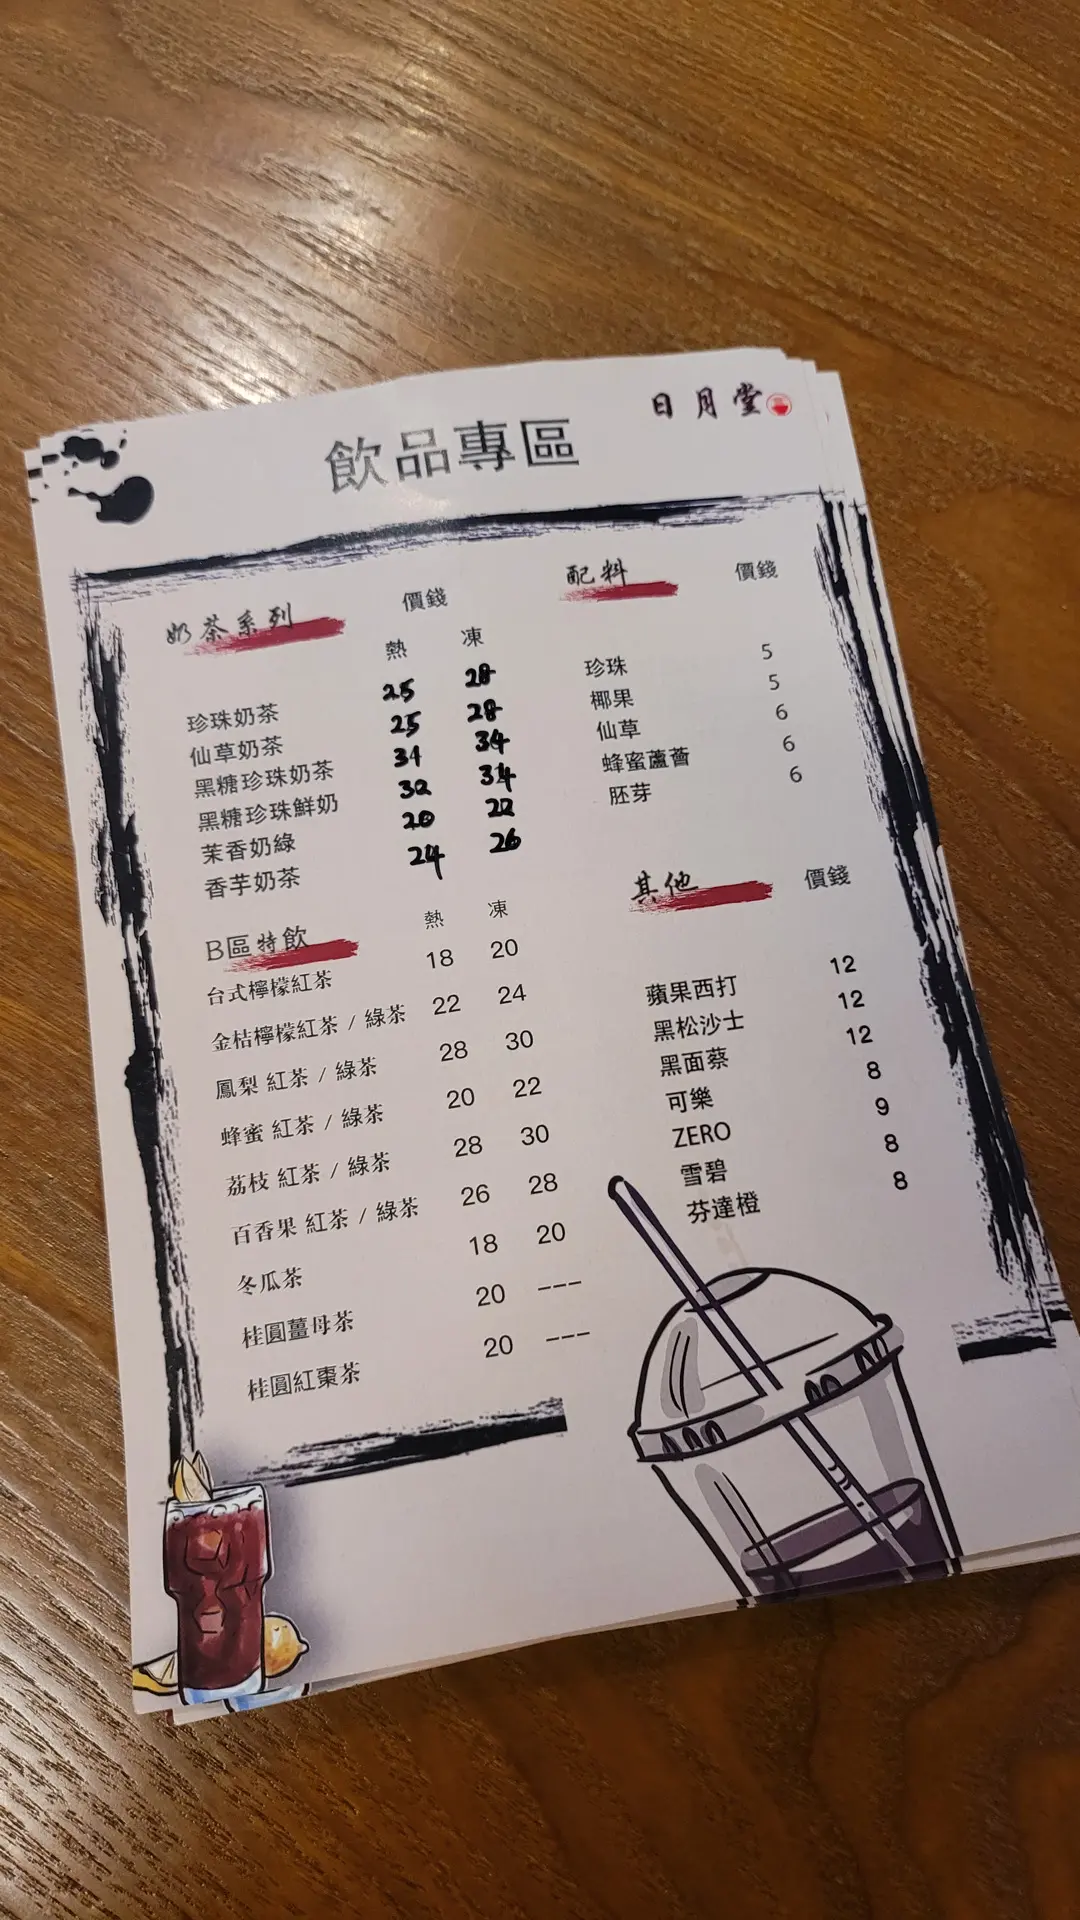 日月堂
飲品專區
奶茶系列 價錢
熱 凍
珍珠奶茶 25 28
仙草奶茶 25 28
黑糖珍珠奶茶 31 34
黑糖珍珠鮮奶 32 34
茉香奶綠 20 22
香芋奶茶 24 26
B區特飲 熱 凍
台式檸檬紅茶 18 20
金桔檸檬紅茶 / 綠茶 22 24
鳳梨 紅茶 / 綠茶 28 30
蜂蜜 紅茶 / 綠茶 20 22
荔枝 紅茶 / 綠茶 28 30
百香果 紅茶 / 綠茶 26 28
冬瓜茶 18 20
桂圓薑母茶 20 ---
桂圓紅棗茶 20 ---
配料 價錢
珍珠 5
椰果 5
仙草 6
蜂蜜蘆薈 6
胚芽 6
其他 價錢
蘋果西打 12
黑松沙士 12
黑面蔡 12
可樂 8
ZERO 9
雪碧 8
芬達橙 8